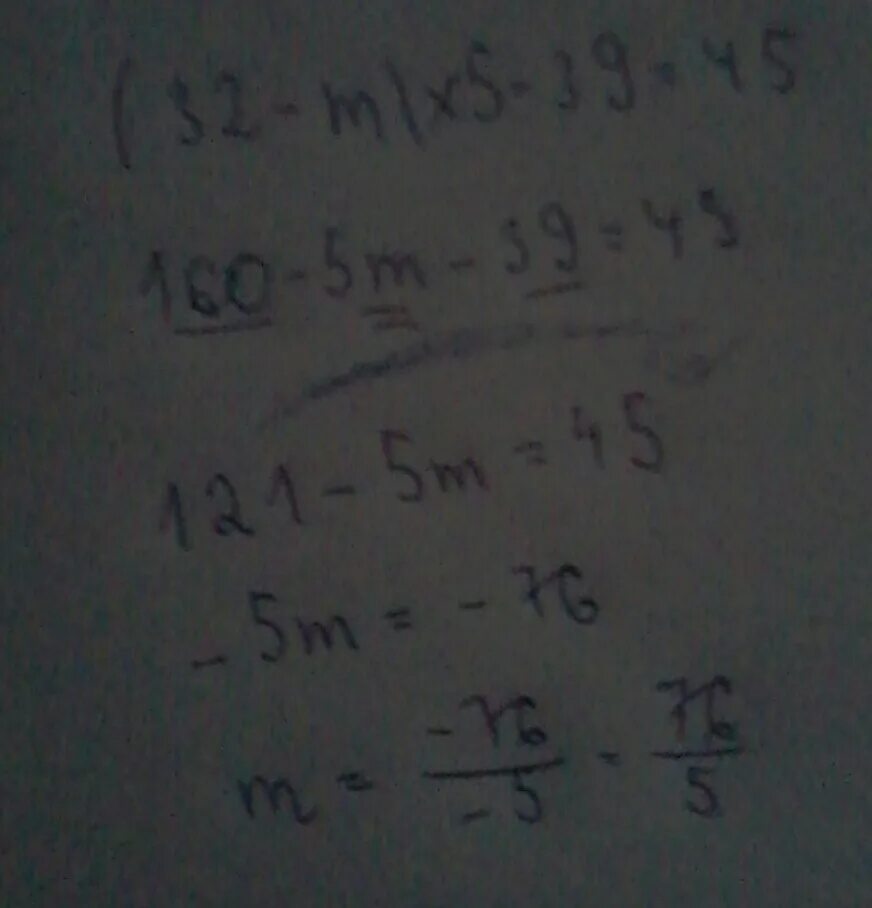 (32 - m) x 5 - 39 = 45
160 - 5m - 39 = 45
121 - 5m = 45
- 5m = - 76
m = -76/-5 = 76/5